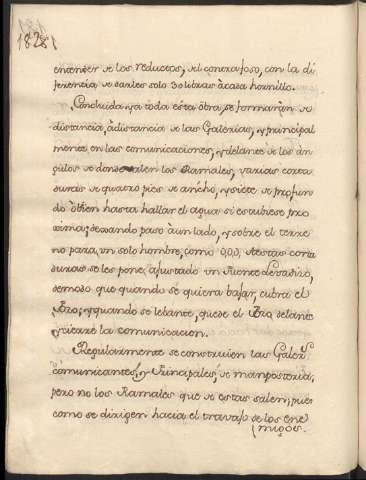 18281
entender de los reductos, del contrafoso, con la di
ferencia de darles solo 30 libras à cada hornillo.
Concluida ya toda esta obra, se formarán de
distancia, à distancia de las Galerias, y principal
mente en las comunicaciones, y delante de los án
gulos de donde salen los Ramales, varias corta
duras de quatro pies de ancho, y siete de profun
do ò bien hasta hallar el agua si estubiese pro
xima; dexando paso à un lado, y sobre el terre
no para, un solo hombre, como 0,0,0. A estas corta
duras se les pone ajustado un Puente levadizo,
de modo que quando se quiera bajar, cubra el
Foso; y quando se lebante, quede el Foso delante
y quitare la comunicacion.
Regularmente se construien las Galer.s
comunicantes, y Principales, de manposteria;
pero no los Ramales que de estas salen; pues
como se dirigen hacia el travajo de los ene
migos.